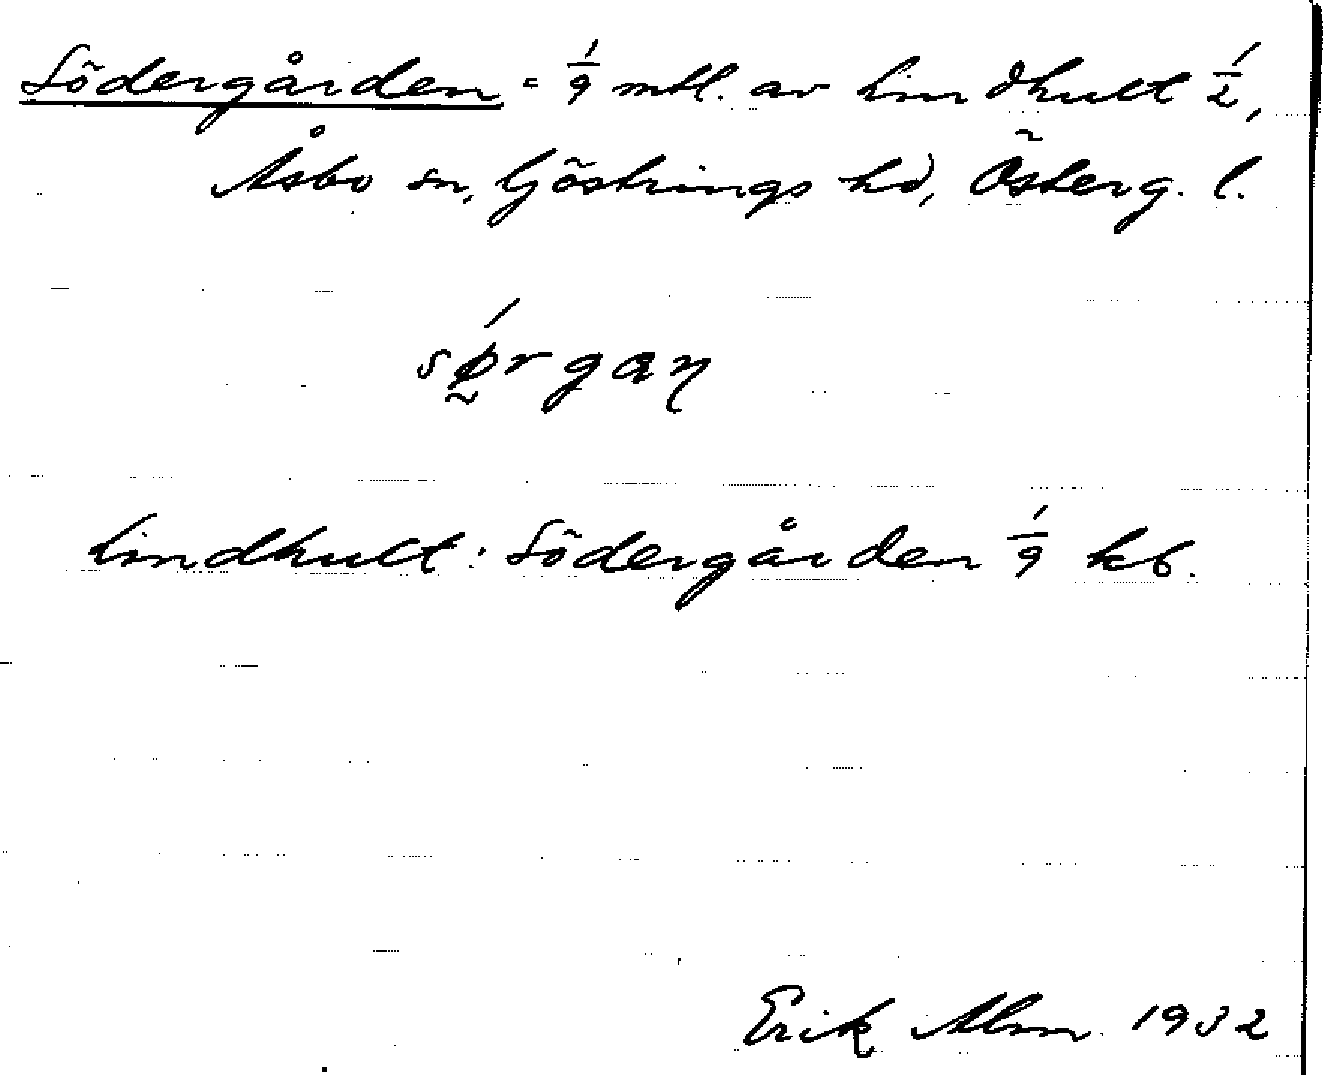 Södergården = 1/9 mtl. av Lindhult 1/2,
Åsbo sn, Göstrings hd, Österg. l.
sǿ̰rgaɳ
Lindhult: Södergården 1/9 kb.
Erik Alm 1932